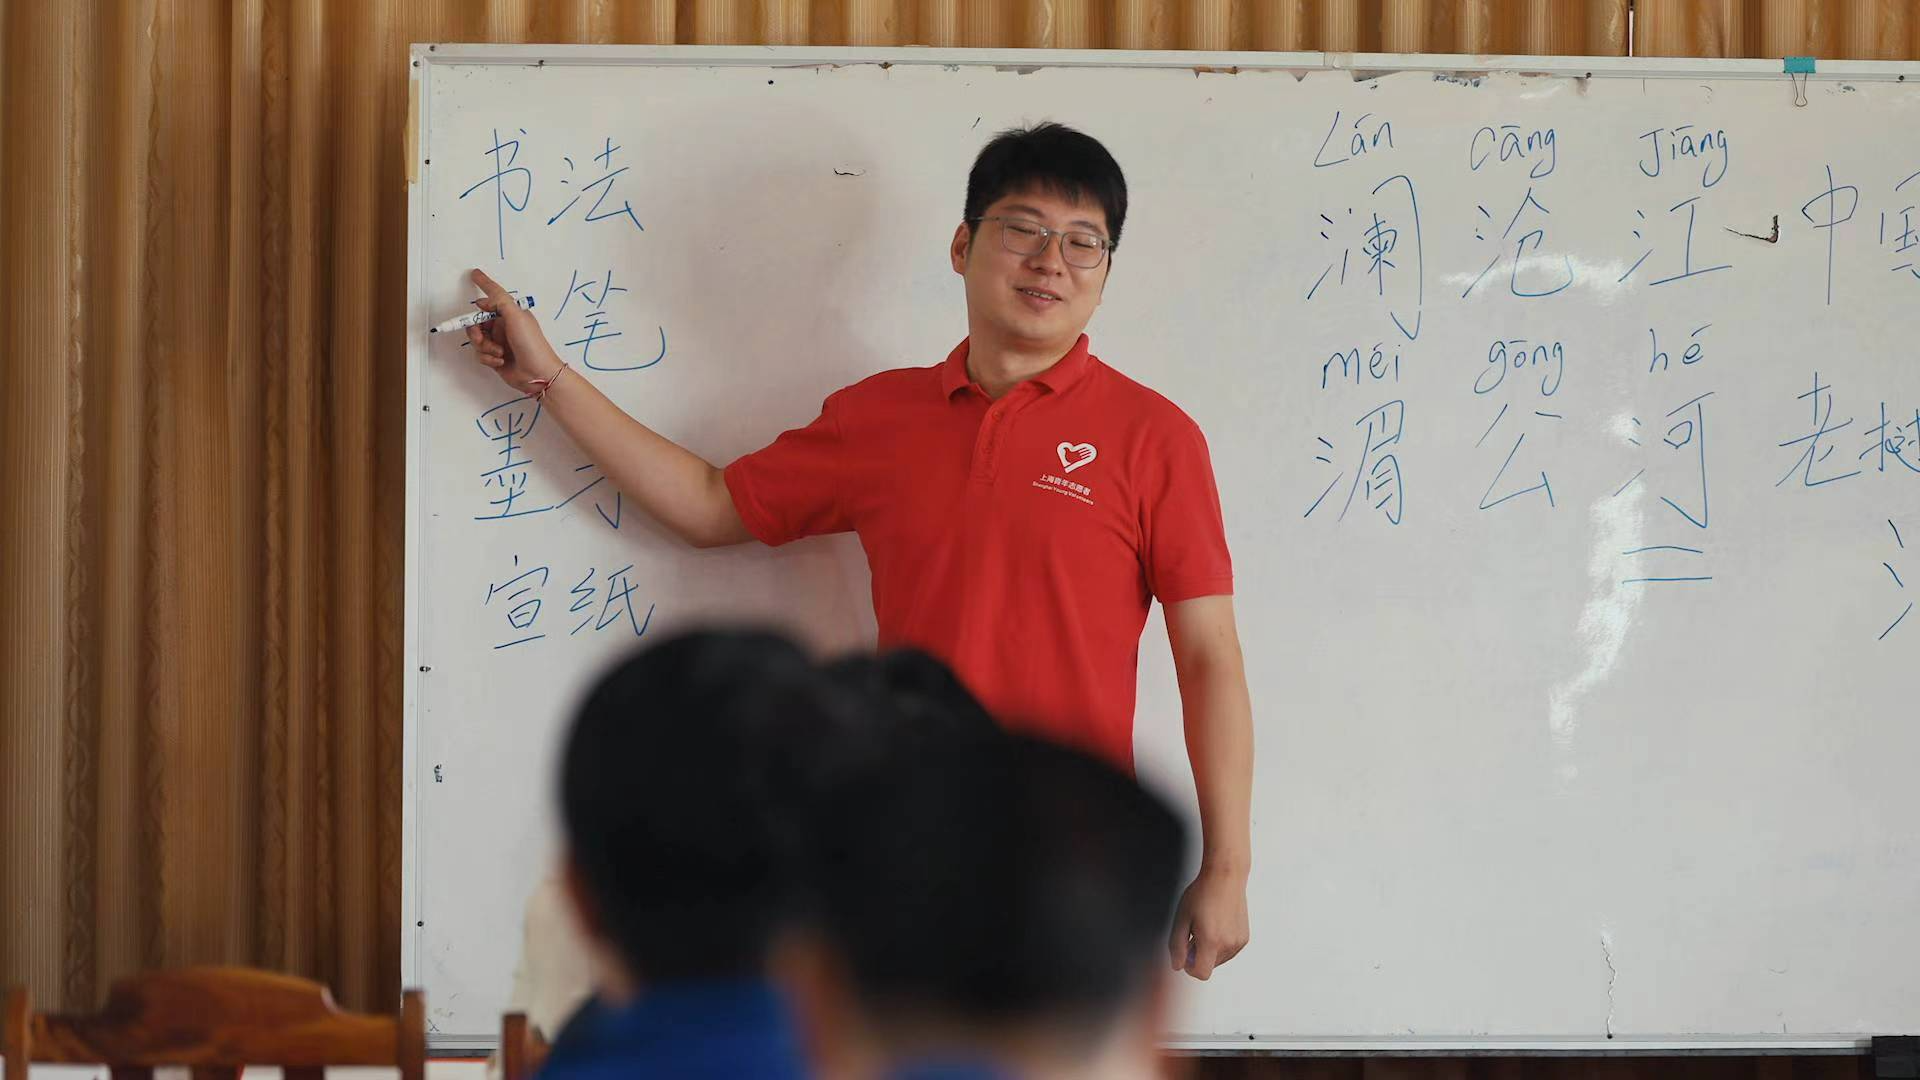 书法
笔
墨
宣纸
Lán cāng Jiāng
澜沧江
méi gōng hé
湄公河
中
老
上海青年志愿者
Shanghai Young Volunteers